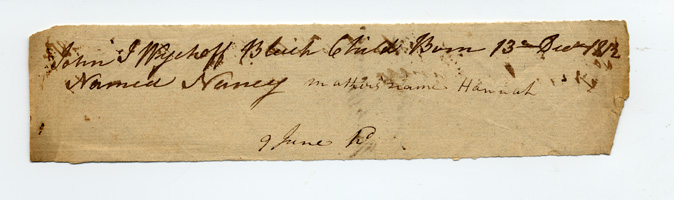 John J Wyckoff Black Child Born 13th Decr 1812
Named Nancy mothers name Hannah
9 June Rd